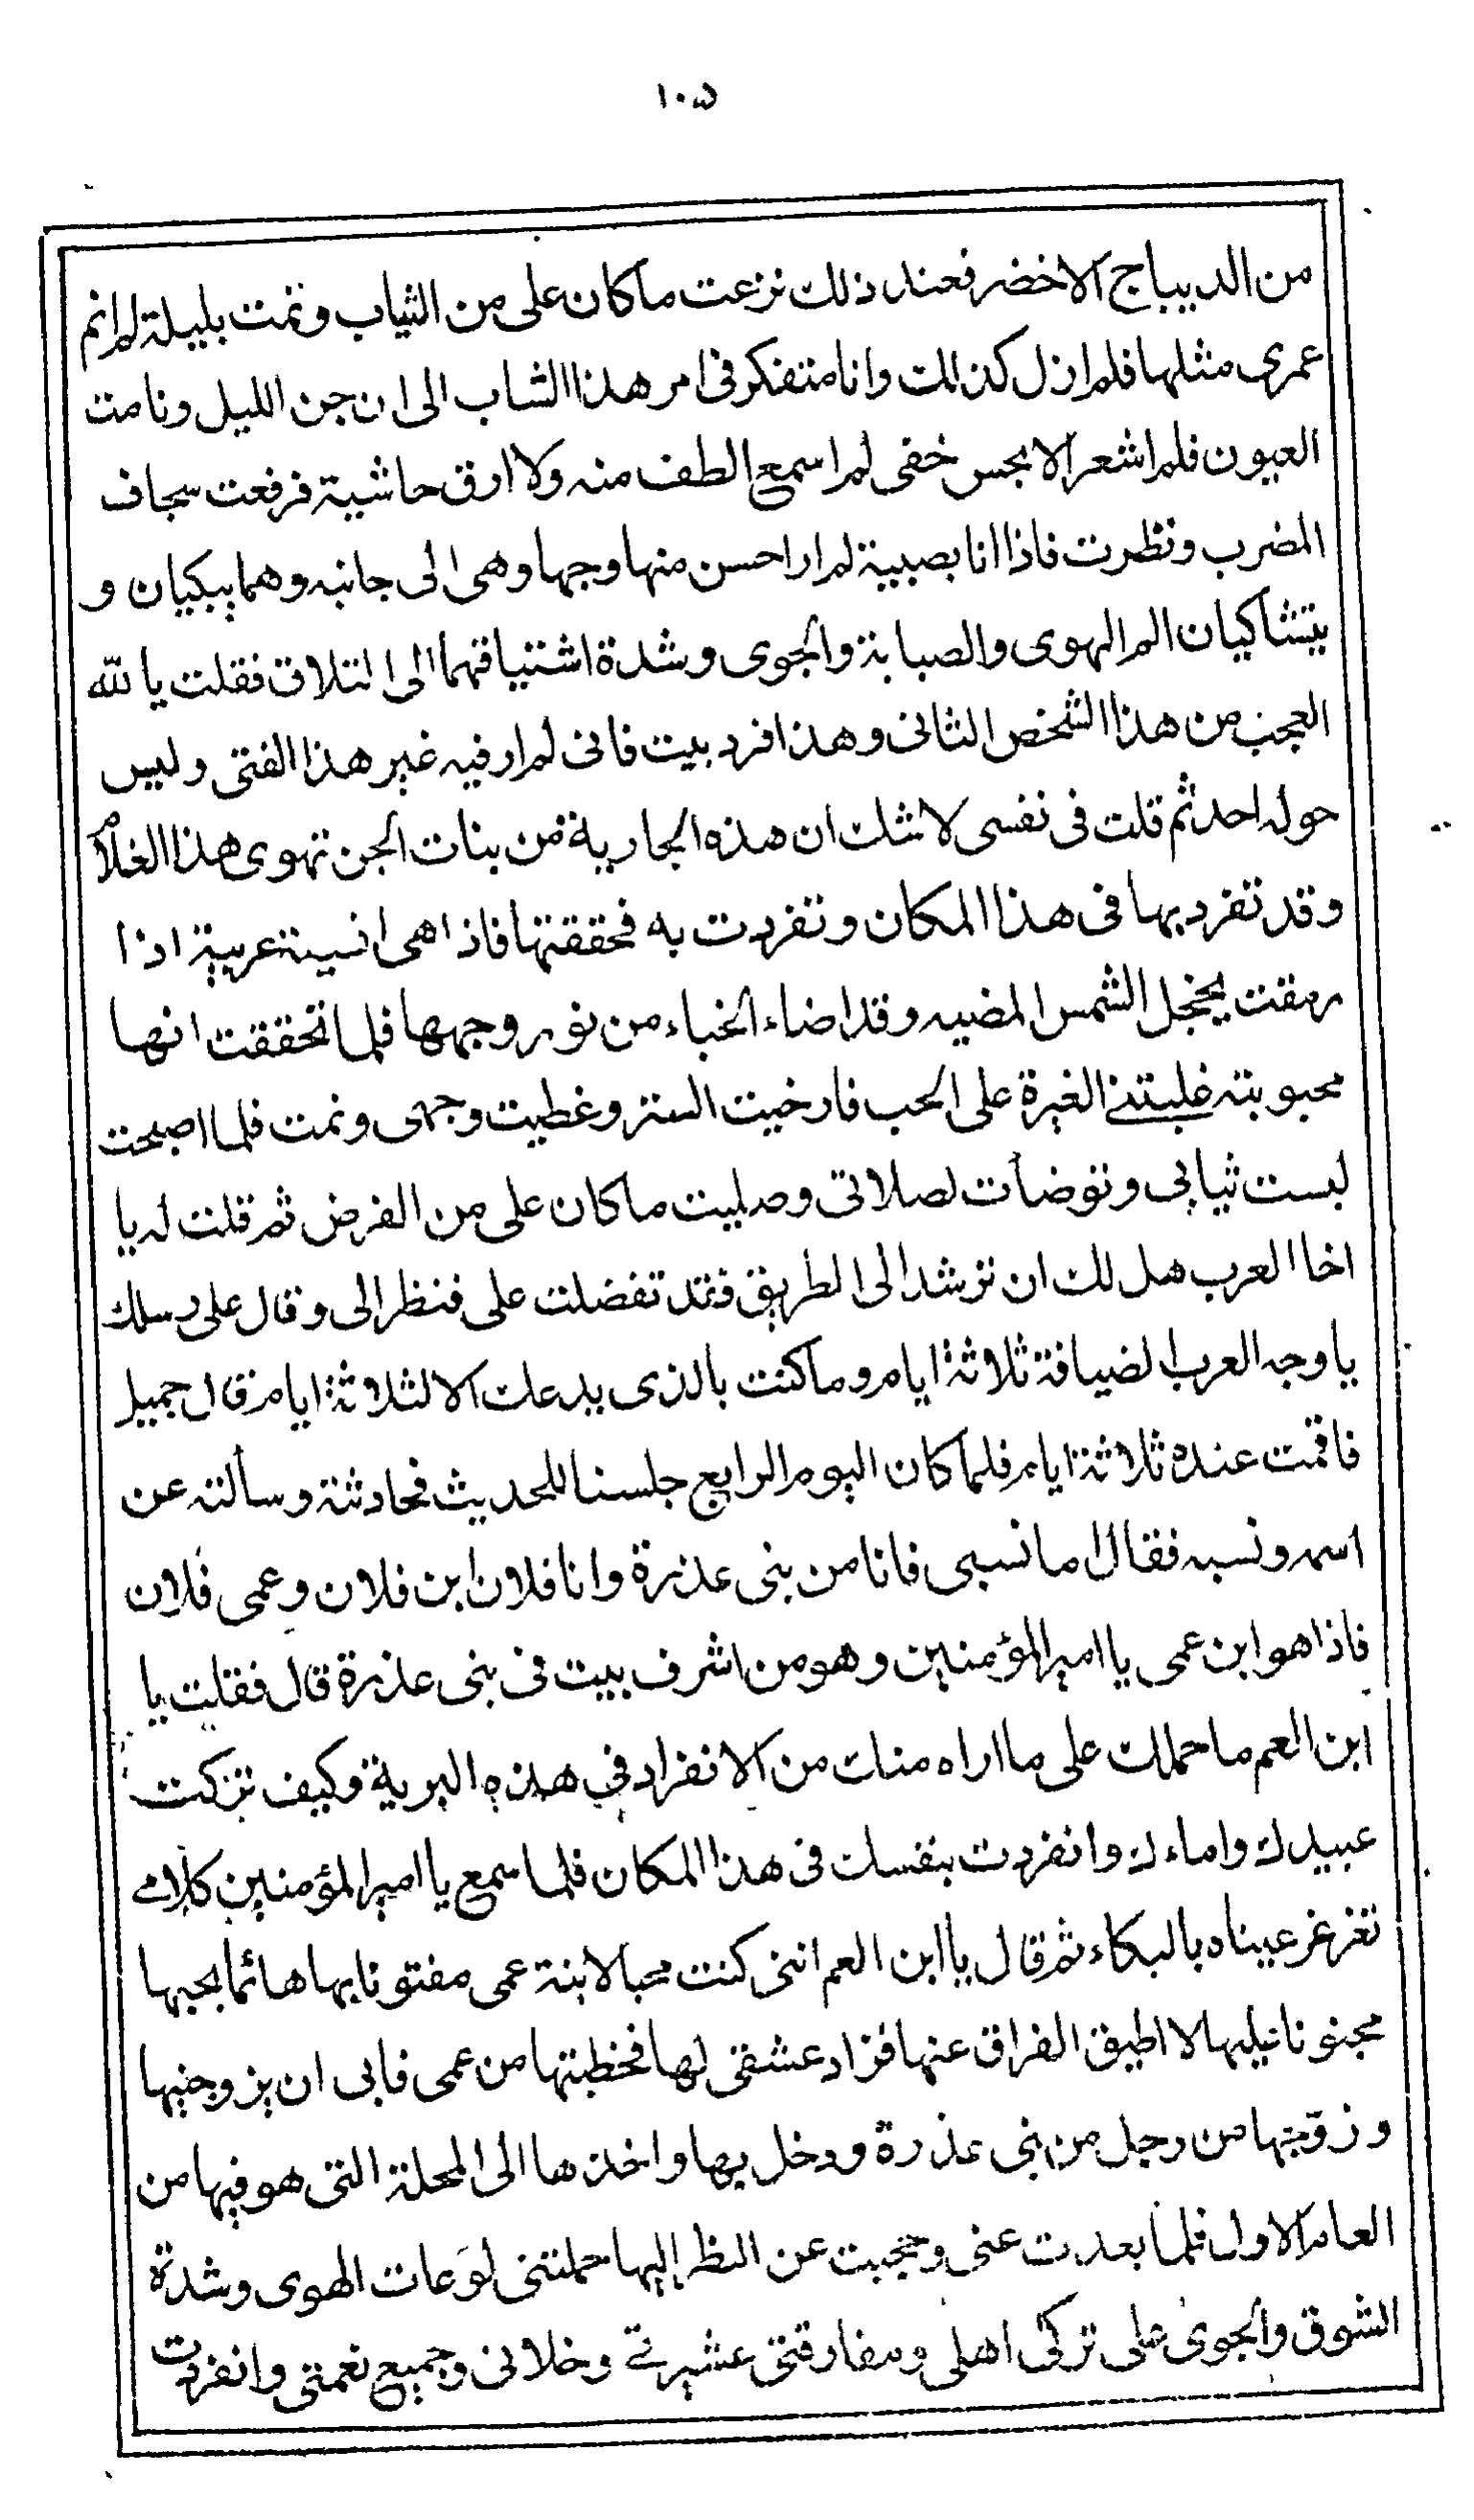 ١٠٥
من الديباج الاخضر فعند ذلك نزعت ما كان على من الثياب ونمت بليلة لم انم
عمرى مثلها فلم ازل كذلك وانا متفكر فى امر هذا الشاب الى ان جن الليل ونامت
العيون فلم اشعر الا بحس خفى لم اسمع الطف منه ولا ارق حاشية فرفعت سجاف
المضرب ونظرت فاذا انا بصبية لم ار احسن منها وجها وهى الى جانبه وهما يبكيان و
يتشاكيان الم الهوى والصبابة والجوى وشدة اشتياقهما الى التلاق فقلت يا لله
العجب من هذا الشخص الثانى وهذا فرد بيت فانى لم ار فيه غير هذا الفتى وليس
حوله احد ثم قلت فى نفسى لا شك ان هذه الجارية من بنات الجن تهوى هذا الغلام
وقد تفرد بها فى هذا المكان وتفردت به فحققتها فاذا هى انسية عربية اذا
رمقت يخجل الشمس المضيه وقد اضاء الخباء من نور وجهها فلما تحققت انها
محبوبته غلبتنى الغيرة على الحب فارخيت الستر وغطيت وجهى ونمت فلما اصبحت
لبست ثيابى وتوضأت لصلاتى وصليت ما كان على من الفرض ثم قلت له يا
اخا العرب هل لك ان ترشد الى الطريق فقد تفضلت على فنظر الى وقال على رسلك
يا وجه العرب الضيافة ثلاثة ايام وما كنت بالذى يدعك الا لثلاثة ايام قال جميل
فاقمت عنده ثلاثة ايام فلما كان اليوم الرابع جلسنا للحديث فحادثته وسألته عن
اسمه ونسبه فقال اما نسبى فانا من بنى عذرة وانا فلان ابن فلان وعمى فلان
فاذا هو ابن عمى يا امير المؤمنين وهو من اشرف بيت فى بنى عذرة قال فقلت يا
ابن العم ما حملك على ما اراه منك من الانفراد فى هذه البرية وكيف تركت
عبيدك واماءك وانفردت بنفسك فى هذا المكان فلما سمع يا امير المؤمنين كلامى
تغرغر عيناه بالبكاء ثم قال يا ابن العم اننى كنت محبا لابنة عمى مفتونا بها هائما بحبها
مجنونا عليها لا اطيق الفراق عنها فزاد عشقى لها فخطبتها من عمى فابى ان يزوجنيها
وزوجها من رجل من بنى عذرة ودخل بها واخذها الى المحلة التى هو فيها من
العام الاول فلما بعدت عنى وحجبت عن النظر اليها حملتنى لوعات الهوى وشدة
الشوق والجوى على تركى اهلى ومفارقتى عشيرتى وخلانى وجميع نعمتى وانفردت